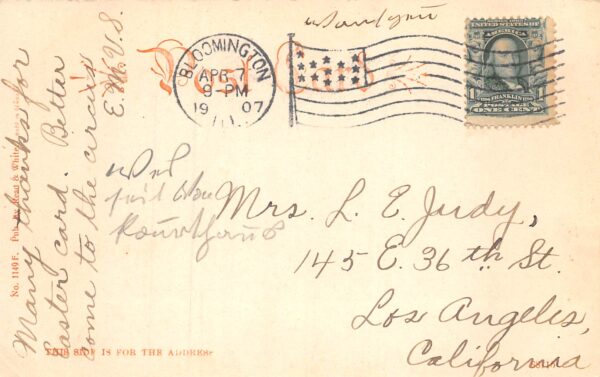 Post Card
BLOOMINGTON
APR 7
9-PM
1907
ILL.
UNITED STATES OF
AMERICA
FRANKLIN
1 POSTAGE 1
ONE CENT
Many thanks for
Easter card. Better
come to the circus
E. M. V. S.
Mrs. L. E. Judy,
145 E. 36th St.
Los Angeles,
California
No. 1140 F. Pub. by
THIS SIDE IS FOR THE ADDRESS